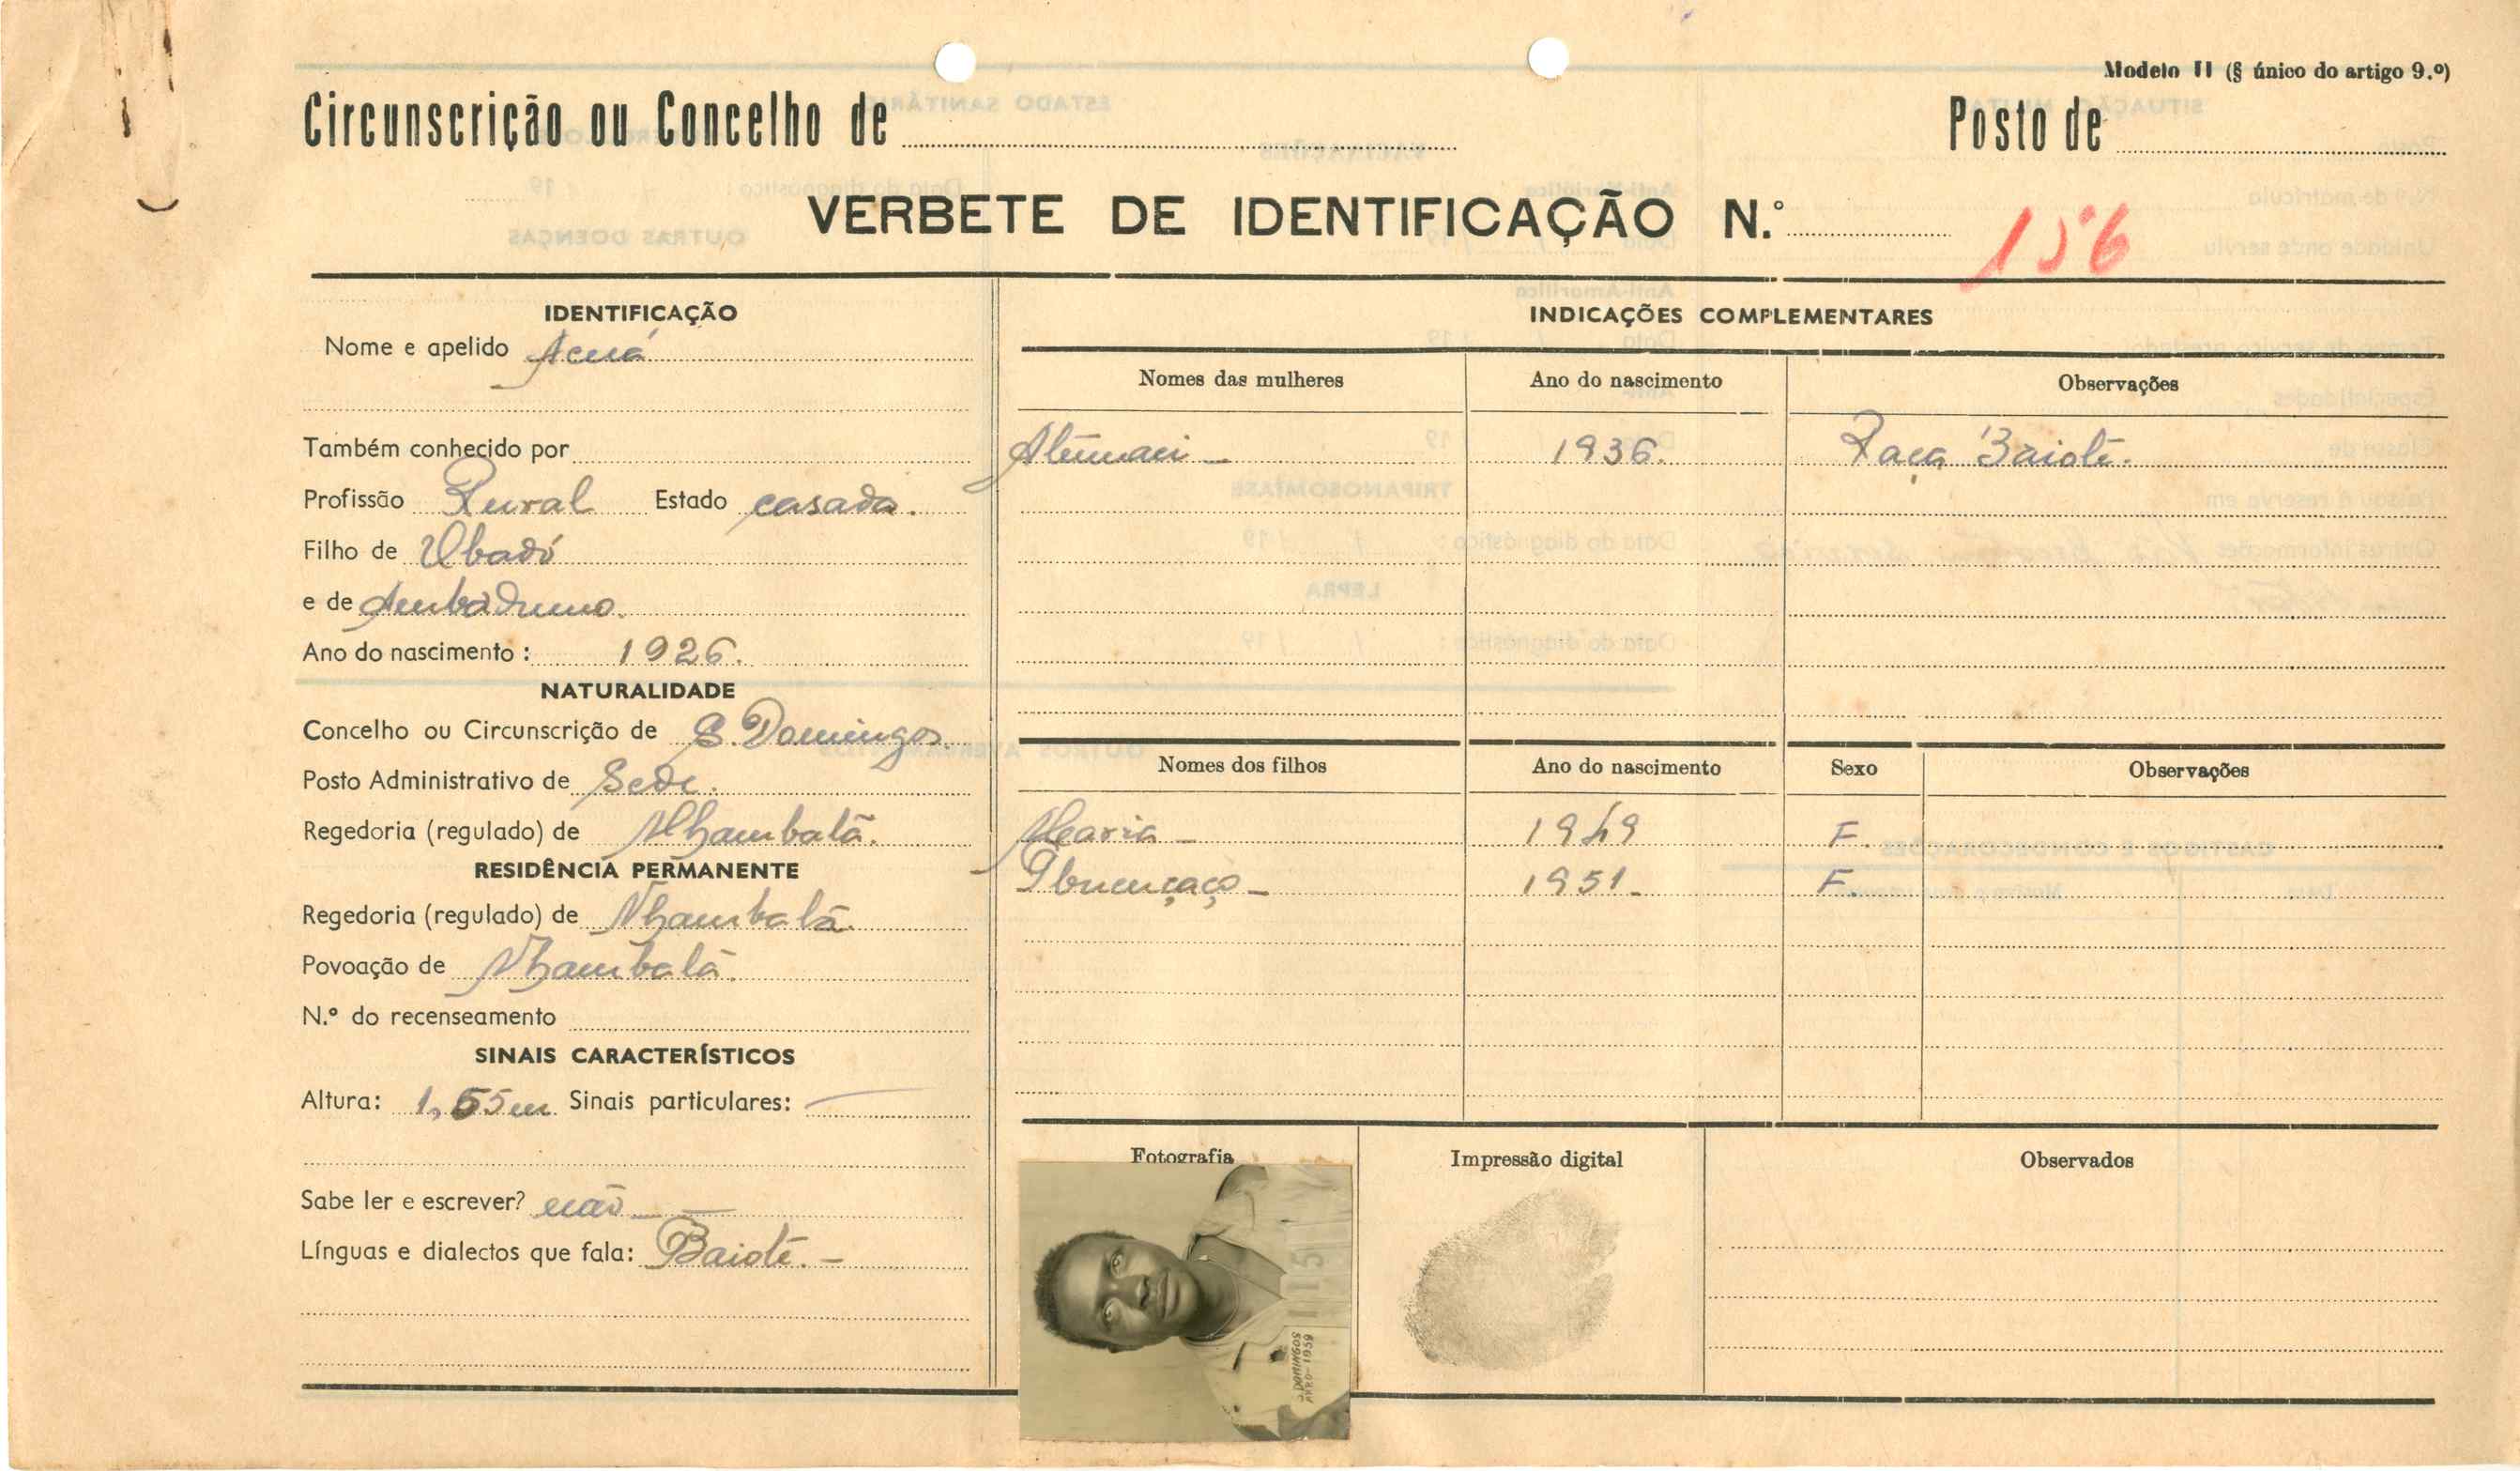 Modelo II (§ único do artigo 9.º)
Circunscrição ou Concelho de
Posto de
VERBETE DE IDENTIFICAÇÃO N.º 156
IDENTIFICAÇÃO
Nome e apelido Acuá
Também conhecido por
Profissão Rural Estado casado.
Filho de Ubadó
e de
Ano do nascimento : 1926.
NATURALIDADE
Concelho ou Circunscrição de S. Domingos.
Posto Administrativo de Sede.
Regedoria (regulado) de Nhambalã.
RESIDÊNCIA PERMANENTE
Regedoria (regulado) de Nhambalã.
Povoação de Nhambalã.
N.º do recenseamento
SINAIS CARACTERÍSTICOS
Altura: 1,65m Sinais particulares: —
Sabe ler e escrever? não —
Línguas e dialectos que fala: Baiote. —
INDICAÇÕES COMPLEMENTARES
Nomes das mulheres Ano do nascimento Observações
1936. Raça Baiote.
Nomes dos filhos Ano do nascimento Sexo Observações
Maria — 1949 F.
1951. F.
Fotografia
Impressão digital
Observados
S.DOMINGOS
1959